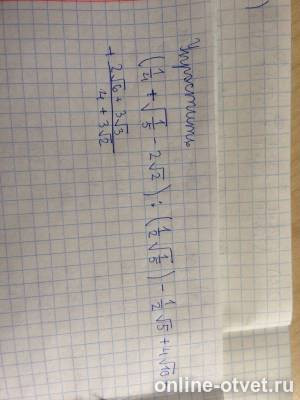 Упростить.
(1/4 + √1/5 - 2√2) : (1/2 √1/5) - 1/2 √5 + 4√10
+ (2√6 + 3√3)/(4 + 3√2)
online-otvet.ru